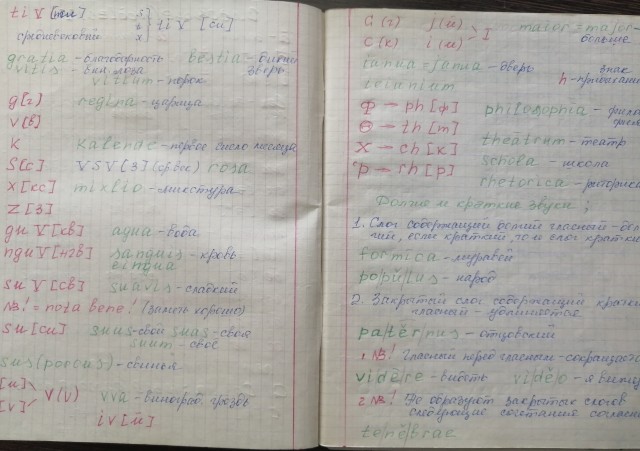 ti V [тси]
s
t
x } ti V [си]
средневековый
gratia - благодарность bestia - бестия
зверь
vitis - вин. лоза
vitium - порок
g [г] regina - царица
v [в]
K Kalendae - первое число месяца
S [с] VSV [з] rosa
X [кс] mixtio - микстура
Z [з]
qu V [кв] aqua - вода
ngu V [нгв] sanguis - кровь
lingua
su V [св] suāvis - сладкий
№! = nota bene! (заметь хорошо)
su [су] suus - свой suas - своя
suum - своё
sus (porcus) - свинья
[u]
[v] } V (v) uva - виноград. гроздь
i V [й]
G (г) j (й)
C (к) i (и) } I major = major -
больше
ianua = janua - дверь знак
h - придыхания
ieiunium
Ф → ph [ф] philosophia -
Θ → th [т] theātrum - театр
X → ch [к] schola - школа
P → rh [р] rhetorica - риторика
Долгие и краткие звуки;
1. Слог содержащий долгий гласный -
если краткий, то и слог краткий
formica - муравей
po/pŭ/lus - народ
2. Закрытый слог содержащий
гласный - удлиняется
pa/tĕr/nus - отцовский
1 №! Гласный перед гласным - сокращается
vidē/re - видеть vi/dĕ/o -
2 №! Не образуют закрытых слогов
следующие сочетания
te/nĕ/brae